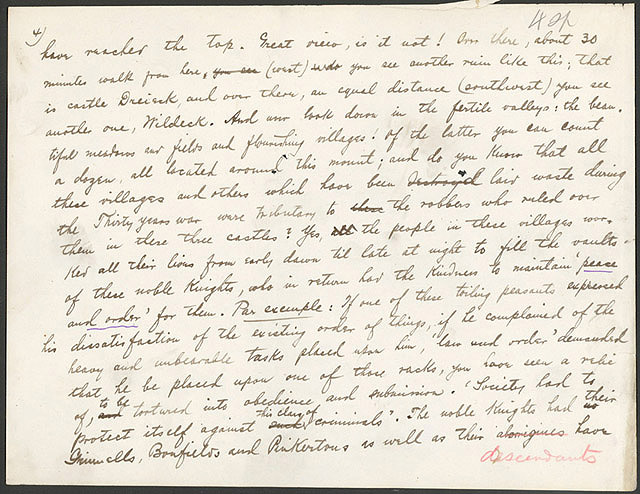 4) 42p
have reached the top. Great view, is it not! Over there, about 30
minutes walk from here, you see (west) you see another ruin like this; that
is castle Dreieck, and over there, an equal distance (southwest) you see
another one, Wildeck. And now look down in the fertile valleys: the beau-
tiful meadows and fields and flourishing villages! Of the latter you can count
a dozen, all located around this mount; and do you know that all
these villages and others which have been destroyed laid waste during
the Thirty years war were tributary to these the robbers who ruled over
them in these three castles? Yes, all the people in these villages wor-
ked all their lives from early dawn til late at night to fill the vaults
of these noble Knights, who in return had the kindness to maintain 'peace
and order' for them. Par exemple: If one of these toiling peasants expressed
his dissatisfaction of the existing order of things, if he complained of the
heavy and unbearable tasks placed upon him, 'law and order' demanded
that he be placed upon one of those racks, you have seen a relic
of, and to be tortured into obedience and submission. 'Society had to
protect itself against such this class of criminals'. The noble Knights had their
Grinnells, Bonfields and Pinkertons as well as their aborigines have
descendants